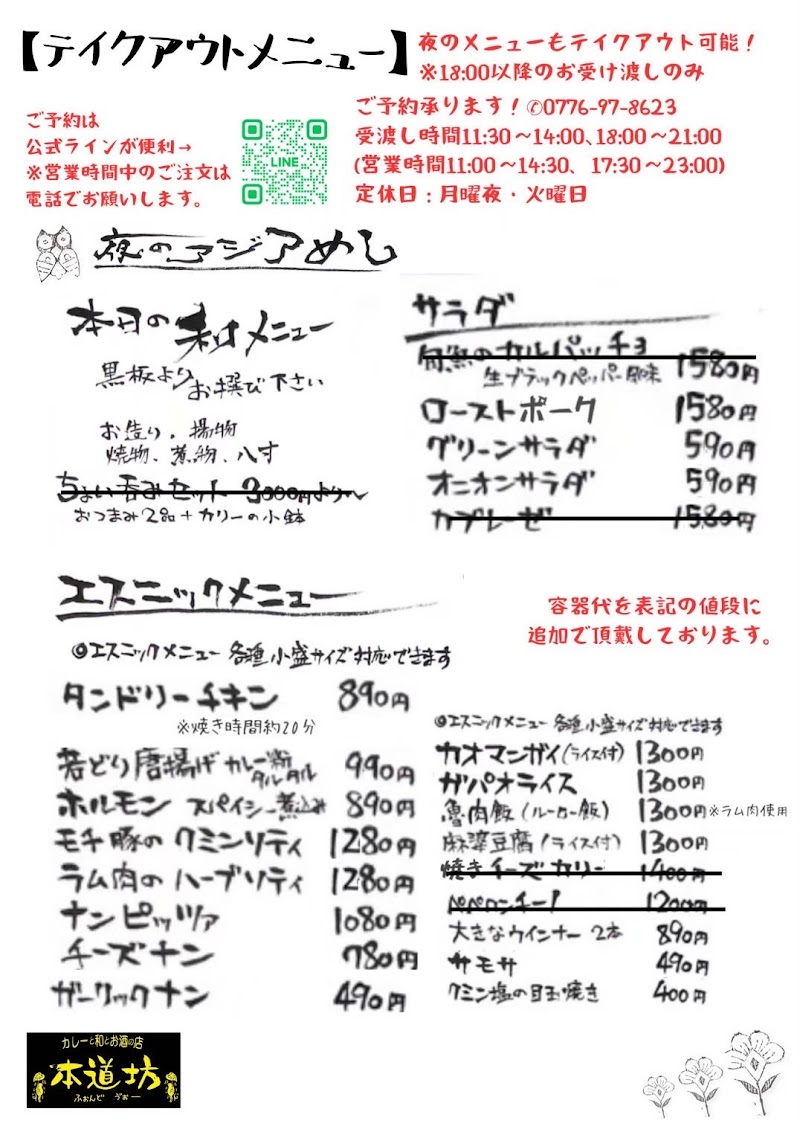 【テイクアウトメニュー】
夜のメニューもテイクアウト可能！
※18:00以降のお受け渡しのみ
ご予約は
公式ラインが便利→
※営業時間中のご注文は
電話でお願いします。
LINE
ご予約承ります！✆0776-97-8623
受渡し時間11:30～14:00、18:00～21:00
(営業時間11:00～14:30、17:30～23:00)
定休日：月曜夜・火曜日
夜のアジアめし
本日の和メニュー
黒板よりお撰び下さい
お造り、揚物
焼物、煮物、八寸
ちょい呑みセット 2000円より～
おつまみ2品+カリーの小鉢
サラダ
旬魚のカルパッチョ
生ブラックペッパー風味 1580円
ローストポーク 1580円
グリーンサラダ 590円
オニオンサラダ 590円
カプレーゼ 1580円
エスニックメニュー
◎エスニックメニュー 各種小盛サイズ対応できます
タンドリーチキン 890円
※焼き時間約20分
若どり唐揚げ カレー粉タルタル 990円
ホルモン スパイシー煮込み 890円
モチ豚のクミンソティ 1280円
ラム肉のハーブソティ 1280円
ナンピッツァ 1080円
チーズナン 780円
ガーリックナン 490円
容器代を表記の値段に
追加で頂戴しております。
◎エスニックメニュー 各種小盛サイズ対応できます
カオマンガイ(ライス付) 1300円
ガパオライス 1300円
魯肉飯(ルーロー飯) 1300円※ラム肉使用
麻婆豆腐(ライス付) 1300円
焼きチーズカリー 1400円
ペペロンチーノ 1200円
大きなウインナー 2本 890円
サモサ 490円
クミン塩の目玉焼き 400円
カレーと和とお酒の店
本道坊
ふぉんど ぼー